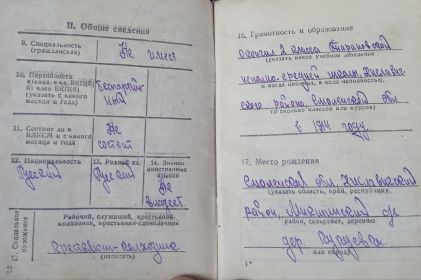 II. Общие сведения
9. Специальность
(гражданская)
Не имеет
10. Партийность
и канд. в чл. ВКП(б)
б) член ВКП(б)
(указать с какого
месяца и года)
беспартий-
ный
11. Состоит ли в
ВЛКСМ и с какого
месяца и года
Не
состоит
12. Национальность
Русский
13. Родной яз.
Русский
14. Знание
иностранных
языков
Не
владеет
Социальное
положение
Рабочий, служащий, крестьянин-
колхозник, крестьянин-единоличник
крестьянин-колхозник
(написать)
16. Грамотность и образование
окончил 2 класса
(указать какое учебное заведение
школы, Хиславич-
и когда, а если неполностью,
ского района, Смоленской обл
то сколько классов или курсов)
в году
17. Место рождения
Смоленская обл Хиславичский
(указать область, край, республику,
район,
район, сельсовет, деревню
дер.
или город)
1*